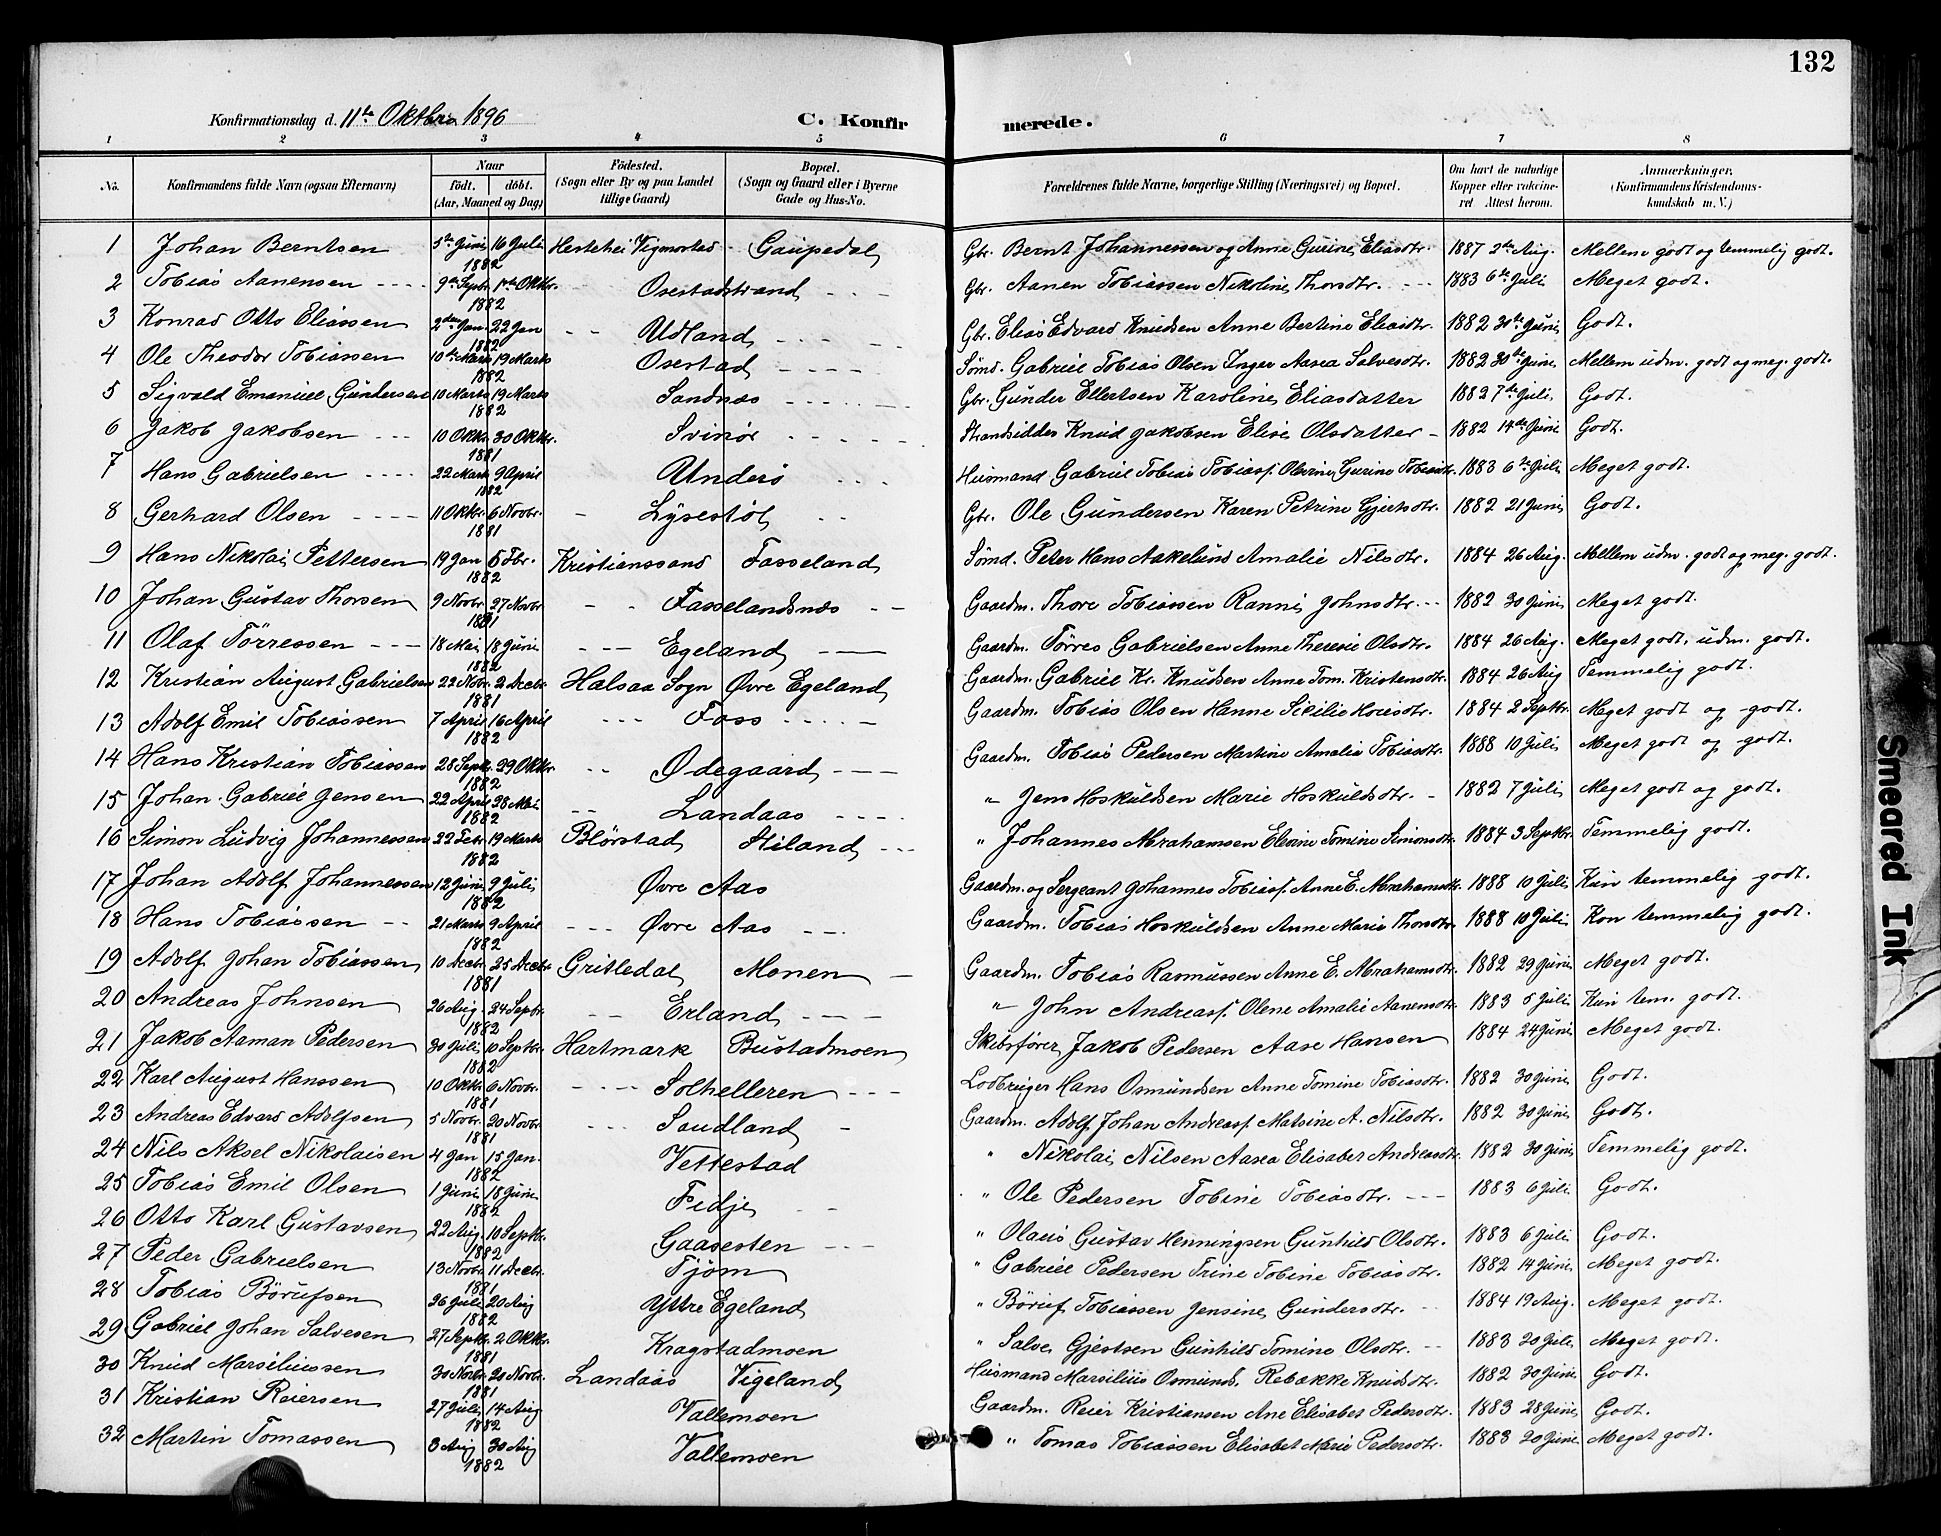 132
Konfirmationsdag d. 11te Oktbr 1896 C. Konfirmerede.
1 2 3 4 5 6 7 8
No. Konfirmandens fulde Navn (ogsaa Efternavn) Naar födt. döbt. (Aar, Maaned og Dag) Födested. (Sogn eller By og paa Landet tillige Gaard) Bopæl. (Sogn og Gaard eller i Byerne Gade og Hus-No. Forældrenes fulde Navne, borgerlige Stilling (Næringsvei) og Bopæl. Om havt de naturlige Kopper eller vaccineret Attest herom. Anmærkninger. (Konfirmandens Kristendomskundskab m. V.)
1 Johan Berntsen 5te Juni 16 Juli 1882 Hestehei Vigmostad Gaupedal Gbr. Bernt Johannessen og Anne Gurine Eliasdtr. 1887 2de Aug. Mellem godt og temmelig godt.
2 Tobias Aanensen 9de Septbr. 1ste Oktbr. 1882 Osestadstrand Gbr. Aanen Tobiassen Nikoline Thorsdtr. 1883 6te Juli Meget godt.
3 Konrad Otto Eliassen 2den Jan. 22 Jan 1882 Udland Gbr. Elias Edvard Knudsen Anne Bertine Eliasdtr. 1882 30te Juni Godt.
4 Ole Theodor Tobiassen 10de Marts 19 Marts 1882 Osestad Sømd. Gabriel Tobias Olsen Inger Aasea Salvesdtr. 1882 30te Juni Mellem udm. godt og meg. godt.
5 Sigvald Emanuel Gundersen 10 Marts 19 Marts 1882 Sandnæs Gbr. Gunder Ellertsen Karoline Eliasdatter 1882 7de Juli Godt.
6 Jakob Jakobsen 10 Oktbr. 30 Oktbr. 1881 Svinör Strandsidder Knud Jakobsen Elise Olsdatter 1882 14de Juni Godt.
7 Hans Gabrielsen 22 Marts 9 April 1882 Underö Husmand Gabriel Tobias Tobiass. Olevine Gurine Tobiasdtr. 1883 6te Juli Meget godt.
8 Gerhard Olsen 11 Oktbr. 6 Novbr. 1881 Lysestöl Gbr. Ole Gundersen Karen Petrine Gjertsdtr. 1882 21 Juni Godt.
9 Hans Nikolai Pettersen 19 Jan 5 Fbr. 1882 Kristianssand Fasseland Sømd. Peter Hans Aakelund Amalie Nilsdtr. 1884 26 Aug. Mellem udm. godt og meg. godt.
10 Johan Gustav Thorsen 9 Novbr. 27 Novbr 1881 Fasselandsnæs Gaardm. Thore Tobiassen Ranni Johnsdtr. 1882 30 Juni Meget godt.
11 Olaf Törressen 18 Mai 18 Juni 1882 Egeland Gaardm. Törres Gabrielsen Anne Therese Olsdtr. 1884 26 Aug. Meget godt, udm. godt.
12 Kristian August Gabrielsen 22 Nvbr. 2 Decbr. 1881 Halsaa Sogn Øvre Egeland Gaardm. Gabriel Kr. Knudsen Anne Tom. Kristensdtr. 1884 26 Aug Temmelig godt.
13 Adolf Emil Tobiassen 7 April 16 April 1882 Foss Gaardm. Tobias Olsen Hanne Secilie 1884 2 Septbr. Meget godt og godt.
14 Hans Kristian Tobiassen 28 Septbr. 29 Oktbr 1882 Ødegaard Gaardm. Tobias Pedersen Martine Amalie Tobiasdtr. 1888 10 Juli Meget godt og godt.
15 Johan Gabriel Jensen 22 April 28 Mai 1882 Landaas " Jens Hoskuldsen Marie Hoskuldsdtr. 1882 7 Juli Meget godt og godt.
16 Simon Ludvig Johannessen 22 Febr. 19 Marts 1882 Blörstad Stiland " Johannes Abrahamsen Elevine Tomine Simonsdtr. 1884 3 Septbr. Temmelig godt.
17 Johan Adolf Johannessen 12 Juni 9 Juli 1882 Øvre Aas Gaardm. og Sergeant Johannes Tobiass. Anne E. Abrahamsdtr. 1888 10 Juli Kun temmelig godt.
18 Hans Tobiassen 21 Marts 9 April 1882 Øvre Aas Gaardm. Tobias Hoskuldsen Anne Marie Thorsdtr 1888 10 Juli Kun temmelig godt.
19 Adolf Johan Tobiassen 10 Decbr. 25 Decbr. 1881 Gritledal Monen Gaardm. Tobias Rasmussen Anne E. Abrahamsdtr. 1882 29 Juni Meget godt.
20 Andreas Johnsen 26 Aug. 24 Septbr. 1882 Erland " John Andreass. Olene Amalie Aanensdtr. 1883 5 Juli Kun tem. godt.
21 Jakob Aaman Pedersen 30 Juli 10 Septbr. 1882 Hartmark Bustadmoen Skibsfører Jakob Pedersen Aase Hansen 1884 24 Juni Meget godt.
22 Karl August Hanssen 10 Oktbr. 6 Novbr. 1881 Solhelleren Lodbruger Hans Osmundsen Anne Tomine Tobiasdtr. 1882 30 Juni Godt.
23 Andreas Edvard Adolfsen 5 Novbr. 20 Novbr 1881 Saudland Gaardm. Adolf Johan Andreass. Matsine A. Nilsdtr. 1882 30 Juni Godt.
24 Nils Aksel Nikolaisen 4 Jan 15 Jan. 1882 Vettestad " Nikolai Nilsen Aasea Elisabet Andreasdtr 1882 30 Juni Temmelig godt.
25 Tobias Emil Olsen 1 Juni 18 Juni 1882 Fidje " Ole Pedersen Tobine Tobiasdtr. 1883 6 Juli Godt.
26 Otto Karl Gustavsen 22 Aug. 10 Septbr. 1882 Gaasesten " Olaus Gustav Henningsen Gunhild Olsdtr. 1883 6 Juli Godt.
27 Peder Gabrielsen 13 Novbr. 11 Decbr. 1881 Tjöm " Gabriel Pedersen Trine Tobine Tobiasdtr. 1882 14 Juni Meget godt.
28 Tobias Börufsen 26 Juli 20 Aug 1882 Yttre Egeland " Böruf Tobiassen Jensine Gundersdtr. 1884 19 Aug. Meget godt.
29 Gabriel Johan Salvesen 27 Septbr. 2 Oktbr. 1881 Kragstadmoen " Salve Gjertsen Gunhild Tomine Olsdtr. 1883 20 Juli Meget godt.
30 Knud Marsiliussen 30 Novbr. 20 Novbr. 1881 Landaas Vigeland Husmand Marsilius Osmunds. Rebække Knudsdtr. 1882 30 Juni Godt.
31 Kristian Reiersen 27 Juli 14 Aug 1882 Vallemoen Gaardm. Reier Kristiansen Ane Elisabet Pedersdtr. 1883 28 Juni Godt.
32 Martin Tomassen 3 Aug 30 Aug 1882 Vallemoen " Tomas Tobiassen Elisabet Marie Pedersdtr. 1883 20 Juni Meget godt.
Smeared Ink